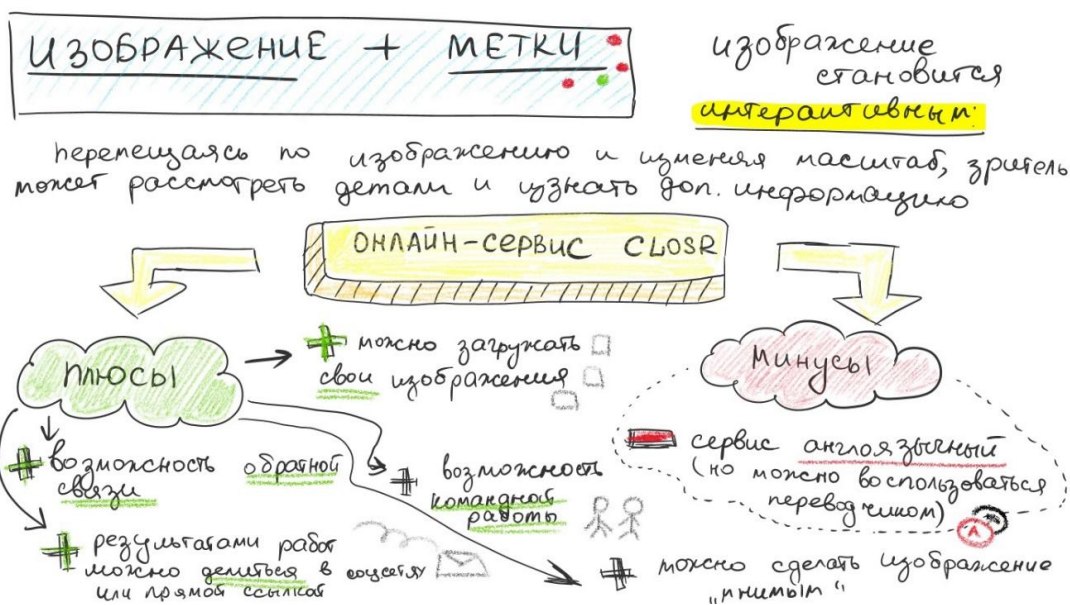 ИЗОБРАЖЕНИЕ + МЕТКИ
изображение
становится
интерактивным:
перемещаясь по изображению и изменяя масштаб, зритель
может рассмотреть детали и узнать доп. информацию
ОНЛАЙН-СЕРВИС CLOSR
ПЛЮСЫ
+ можно загружать
свои изображения
+ возможность обратной
связи
+ возможность
командной
работы
+ результатами работ
можно делиться в соцсетях
или прямой ссылкой
МИНУСЫ
сервис англоязычный
(но можно воспользоваться
переводчиком)
А
+ можно сделать изображение